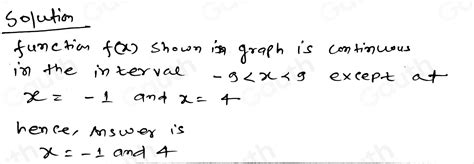 Solution
function f(x) shown in graph is continuous
in the interval -9<x<9 except at
x = -1 and x = 4
hence, Answer is
x = -1 and 4